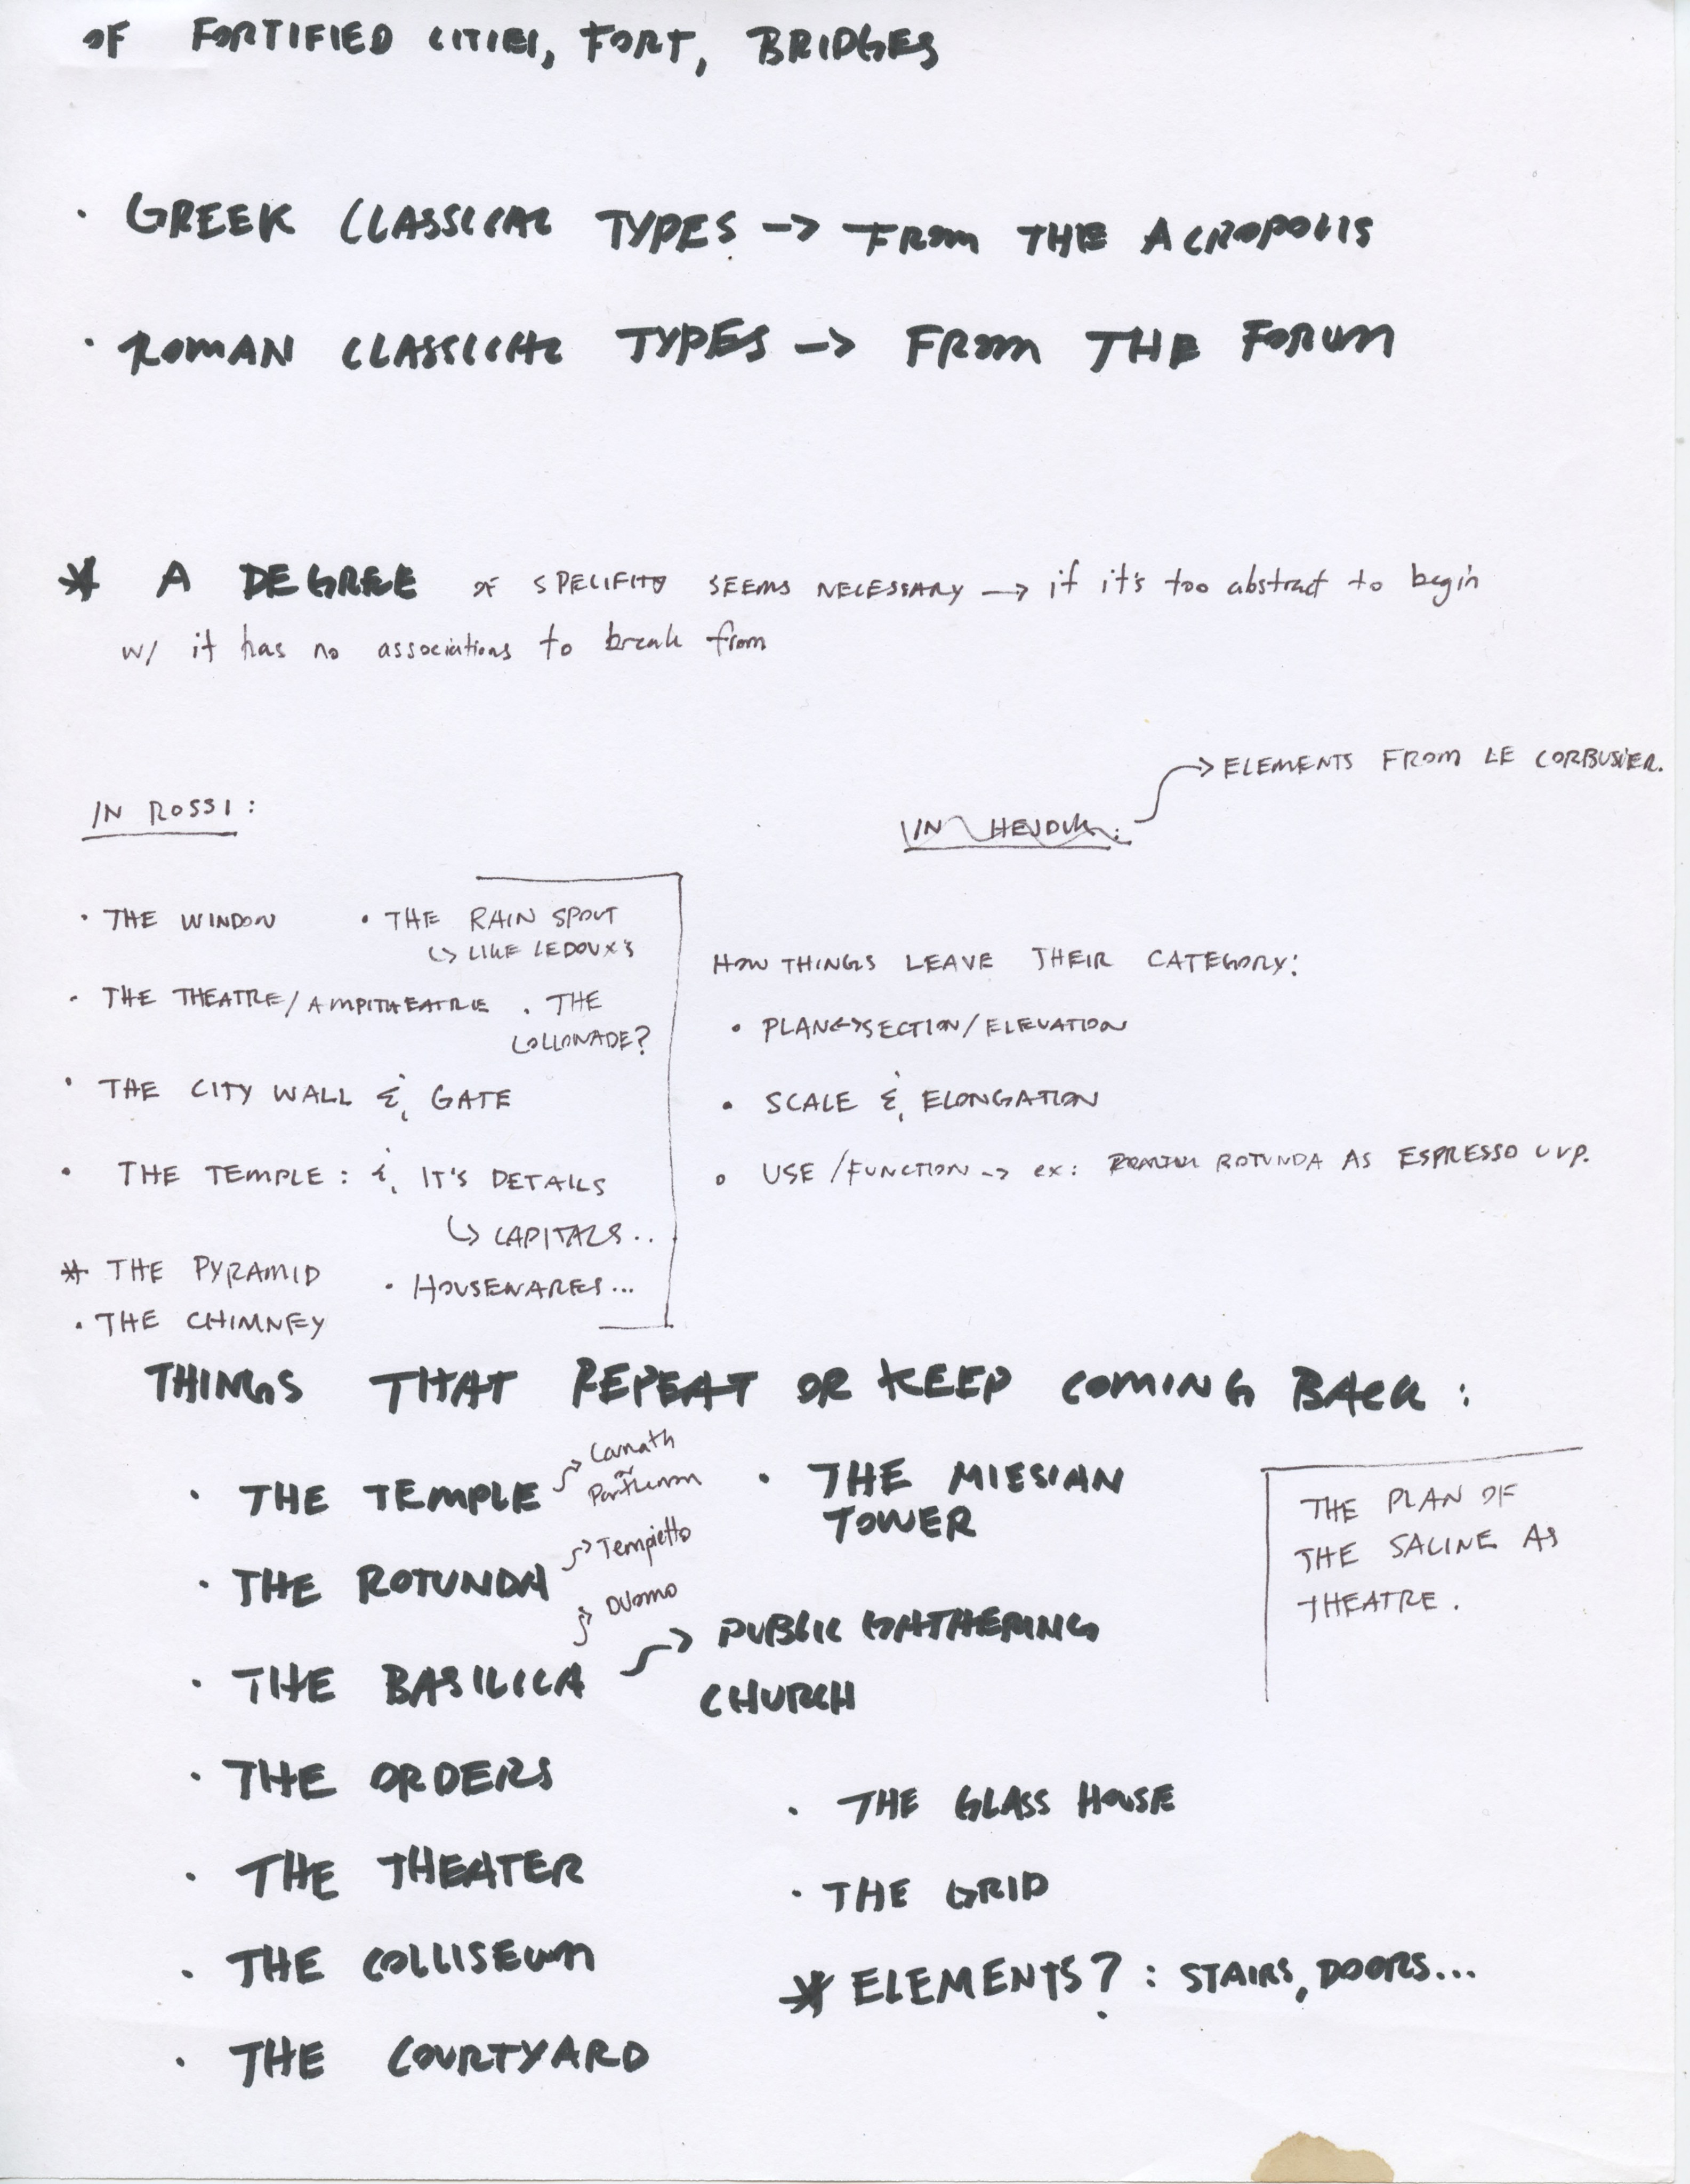 OF FORTIFIED CITIES, FORT, BRIDGES
· GREEK CLASSICAL TYPES -> FROM THE ACROPOLIS
· ROMAN CLASSICAL TYPES -> FROM THE FORUM
* A DEGREE OF SPECIFITY SEEMS NECESSARY -> if it's too abstract to begin
w/ it has no associations to break from
-> ELEMENTS FROM LE CORBUSIER.
IN ROSSI:
IN HEJDUK:
· THE WINDOW
· THE RAIN SPOUT
↳ LIKE LEDOUX'S
· THE THEATRE/AMPITHEATRE
· THE
COLLONADE?
· THE CITY WALL & GATE
· THE TEMPLE: & IT'S DETAILS
↳ CAPITALS..
* THE PYRAMID
· HOUSEWARES...
· THE CHIMNEY
HOW THINGS LEAVE THEIR CATEGORY:
· PLAN<->SECTION/ELEVATION
· SCALE & ELONGATION
· USE/FUNCTION -> ex: ROTUNDA AS ESPRESSO CUP.
THINGS THAT REPEAT OR KEEP COMING BACK:
· THE TEMPLE
-> 
Parthenon
· THE ROTUNDA
-> Tempietto
-> Duomo
· THE BASILICA -> PUBLIC GATHERING
CHURCH
· THE ORDERS
· THE THEATER
· THE COLLISEUM
· THE COURTYARD
· THE MIESIAN
TOWER
THE PLAN OF
THE SALINE AS
THEATRE.
· THE GLASS HOUSE
· THE GRID
* ELEMENTS?: STAIRS, DOORS...